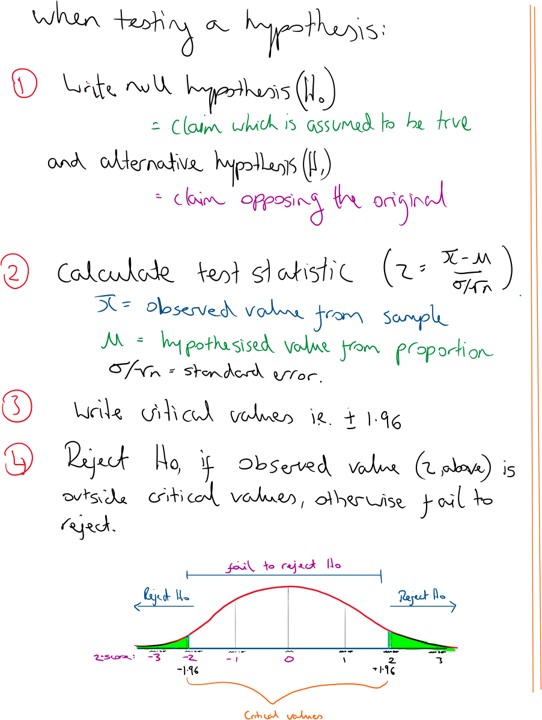 when testing a hypothesis:
① Write null hypothesis (H₀)
= claim which is assumed to be true
and alternative hypothesis (H₁)
= claim opposing the original
② Calculate test statistic (z = (x̄ - μ)/(σ/√n)).
x̄ = observed value from sample
μ = hypothesised value from proportion
σ/√n = standard error.
③ Write critical values ie. ± 1.96
④ Reject H₀, if observed value (z, above) is
outside critical values, otherwise fail to
reject.
fail to reject H₀
Reject H₀ Reject H₀
z-score: -3 -2 -1 0 1 2 3
-1.96 +1.96
Critical values